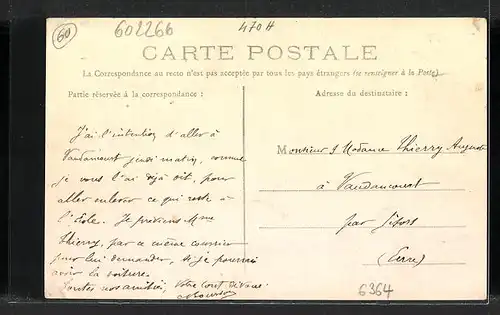 60
602266
470H
CARTE POSTALE
La Correspondance au recto n'est pas acceptée par tous les pays étrangers (se renseigner à la Poste)
Partie réservée à la correspondance :
Adresse du destinataire :
J'ai l'intention d'aller à
Vaudancourt jeudi matin, comme
je vous l'ai déjà dit, pour
aller enlever ce qui reste à
l'école. Je préviens Mme
Thierry, par ce même courrier
pour lui demander, si je pourrai
avoir la voiture.
Toutes nos amitiés, Votre tout dévoué
Monsieur & Madame Thierry Auguste
à Vaudancourt
par Gisors
(Eure)
6364